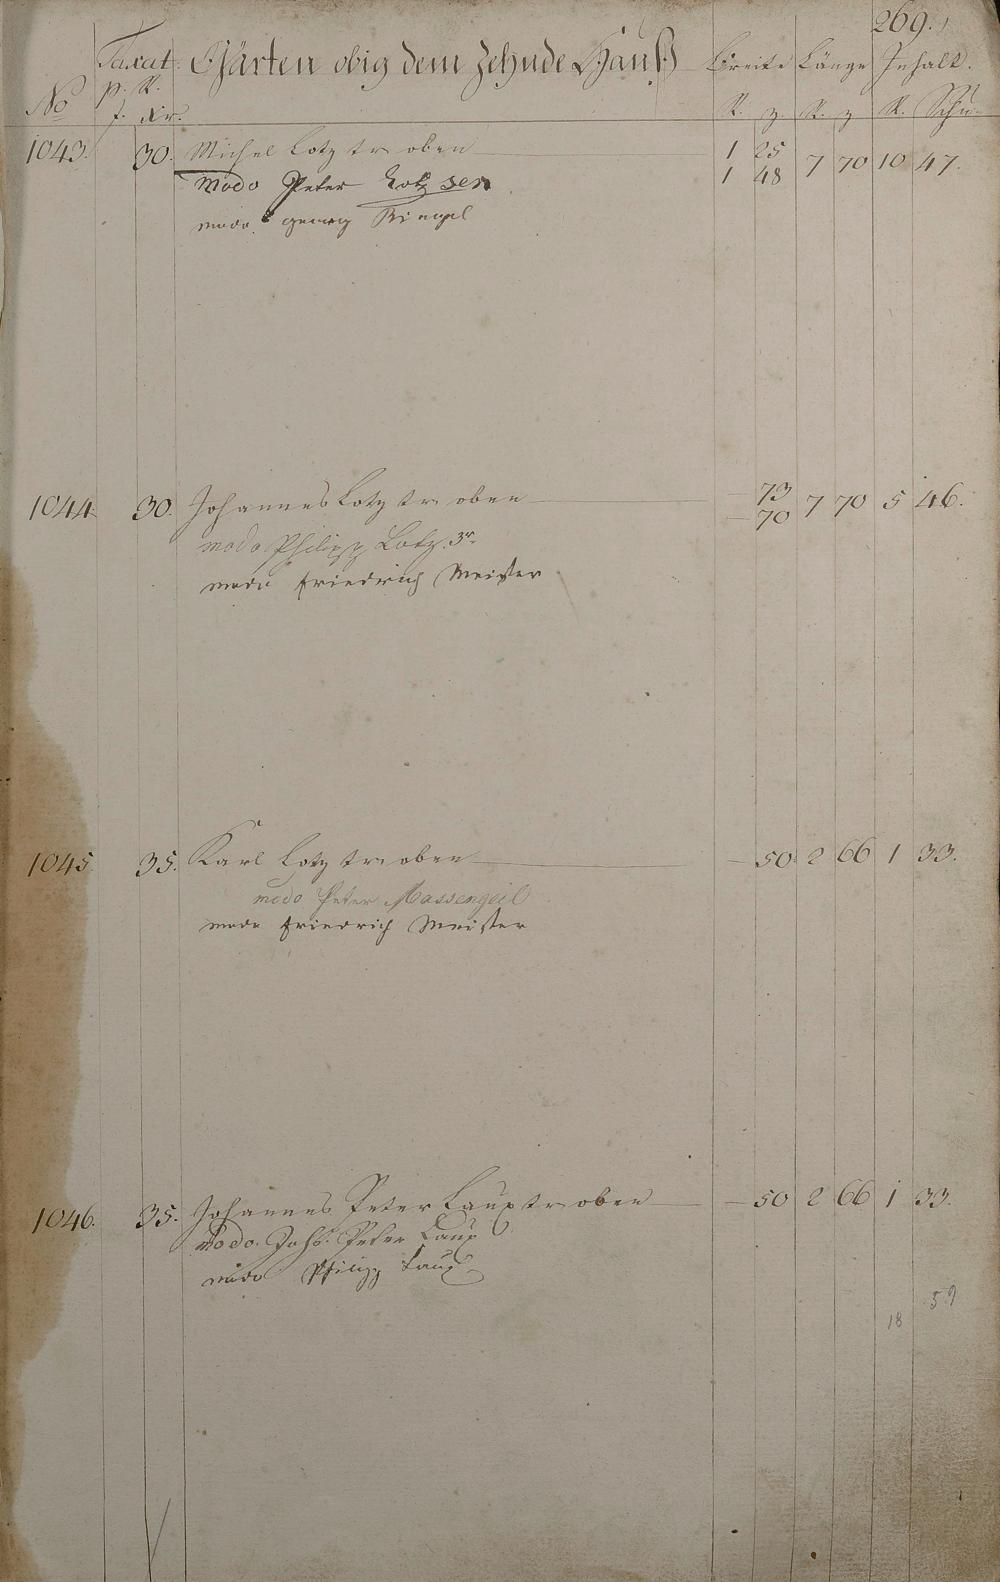 269.
No Taxat p. R. f. Xr. Gärten obig dem Zehnde Hauß Breite R. z. Länge R. z Inhalt. R. Schu.
1043. 30. Michel Lotz tr oben 1 25 7 70 10 47.
modo Peter Lotz sen 1 48
modo georg
1044. 30. Johannes Lotz tr oben — 73 7 70 5 46.
modo Philipp Lotz. 3r. — 70
modo Friedrich Meister
1045 35. Karl Lotz tr oben — 50 2 66 1 33.
modo Peter Massengeil
modo Friedrich Meister
1046. 35. Johannes Peter Laux tr oben — 50 2 66 1 33.
modo. Johs. Peter Laux
modo Philipp Laux
18 59